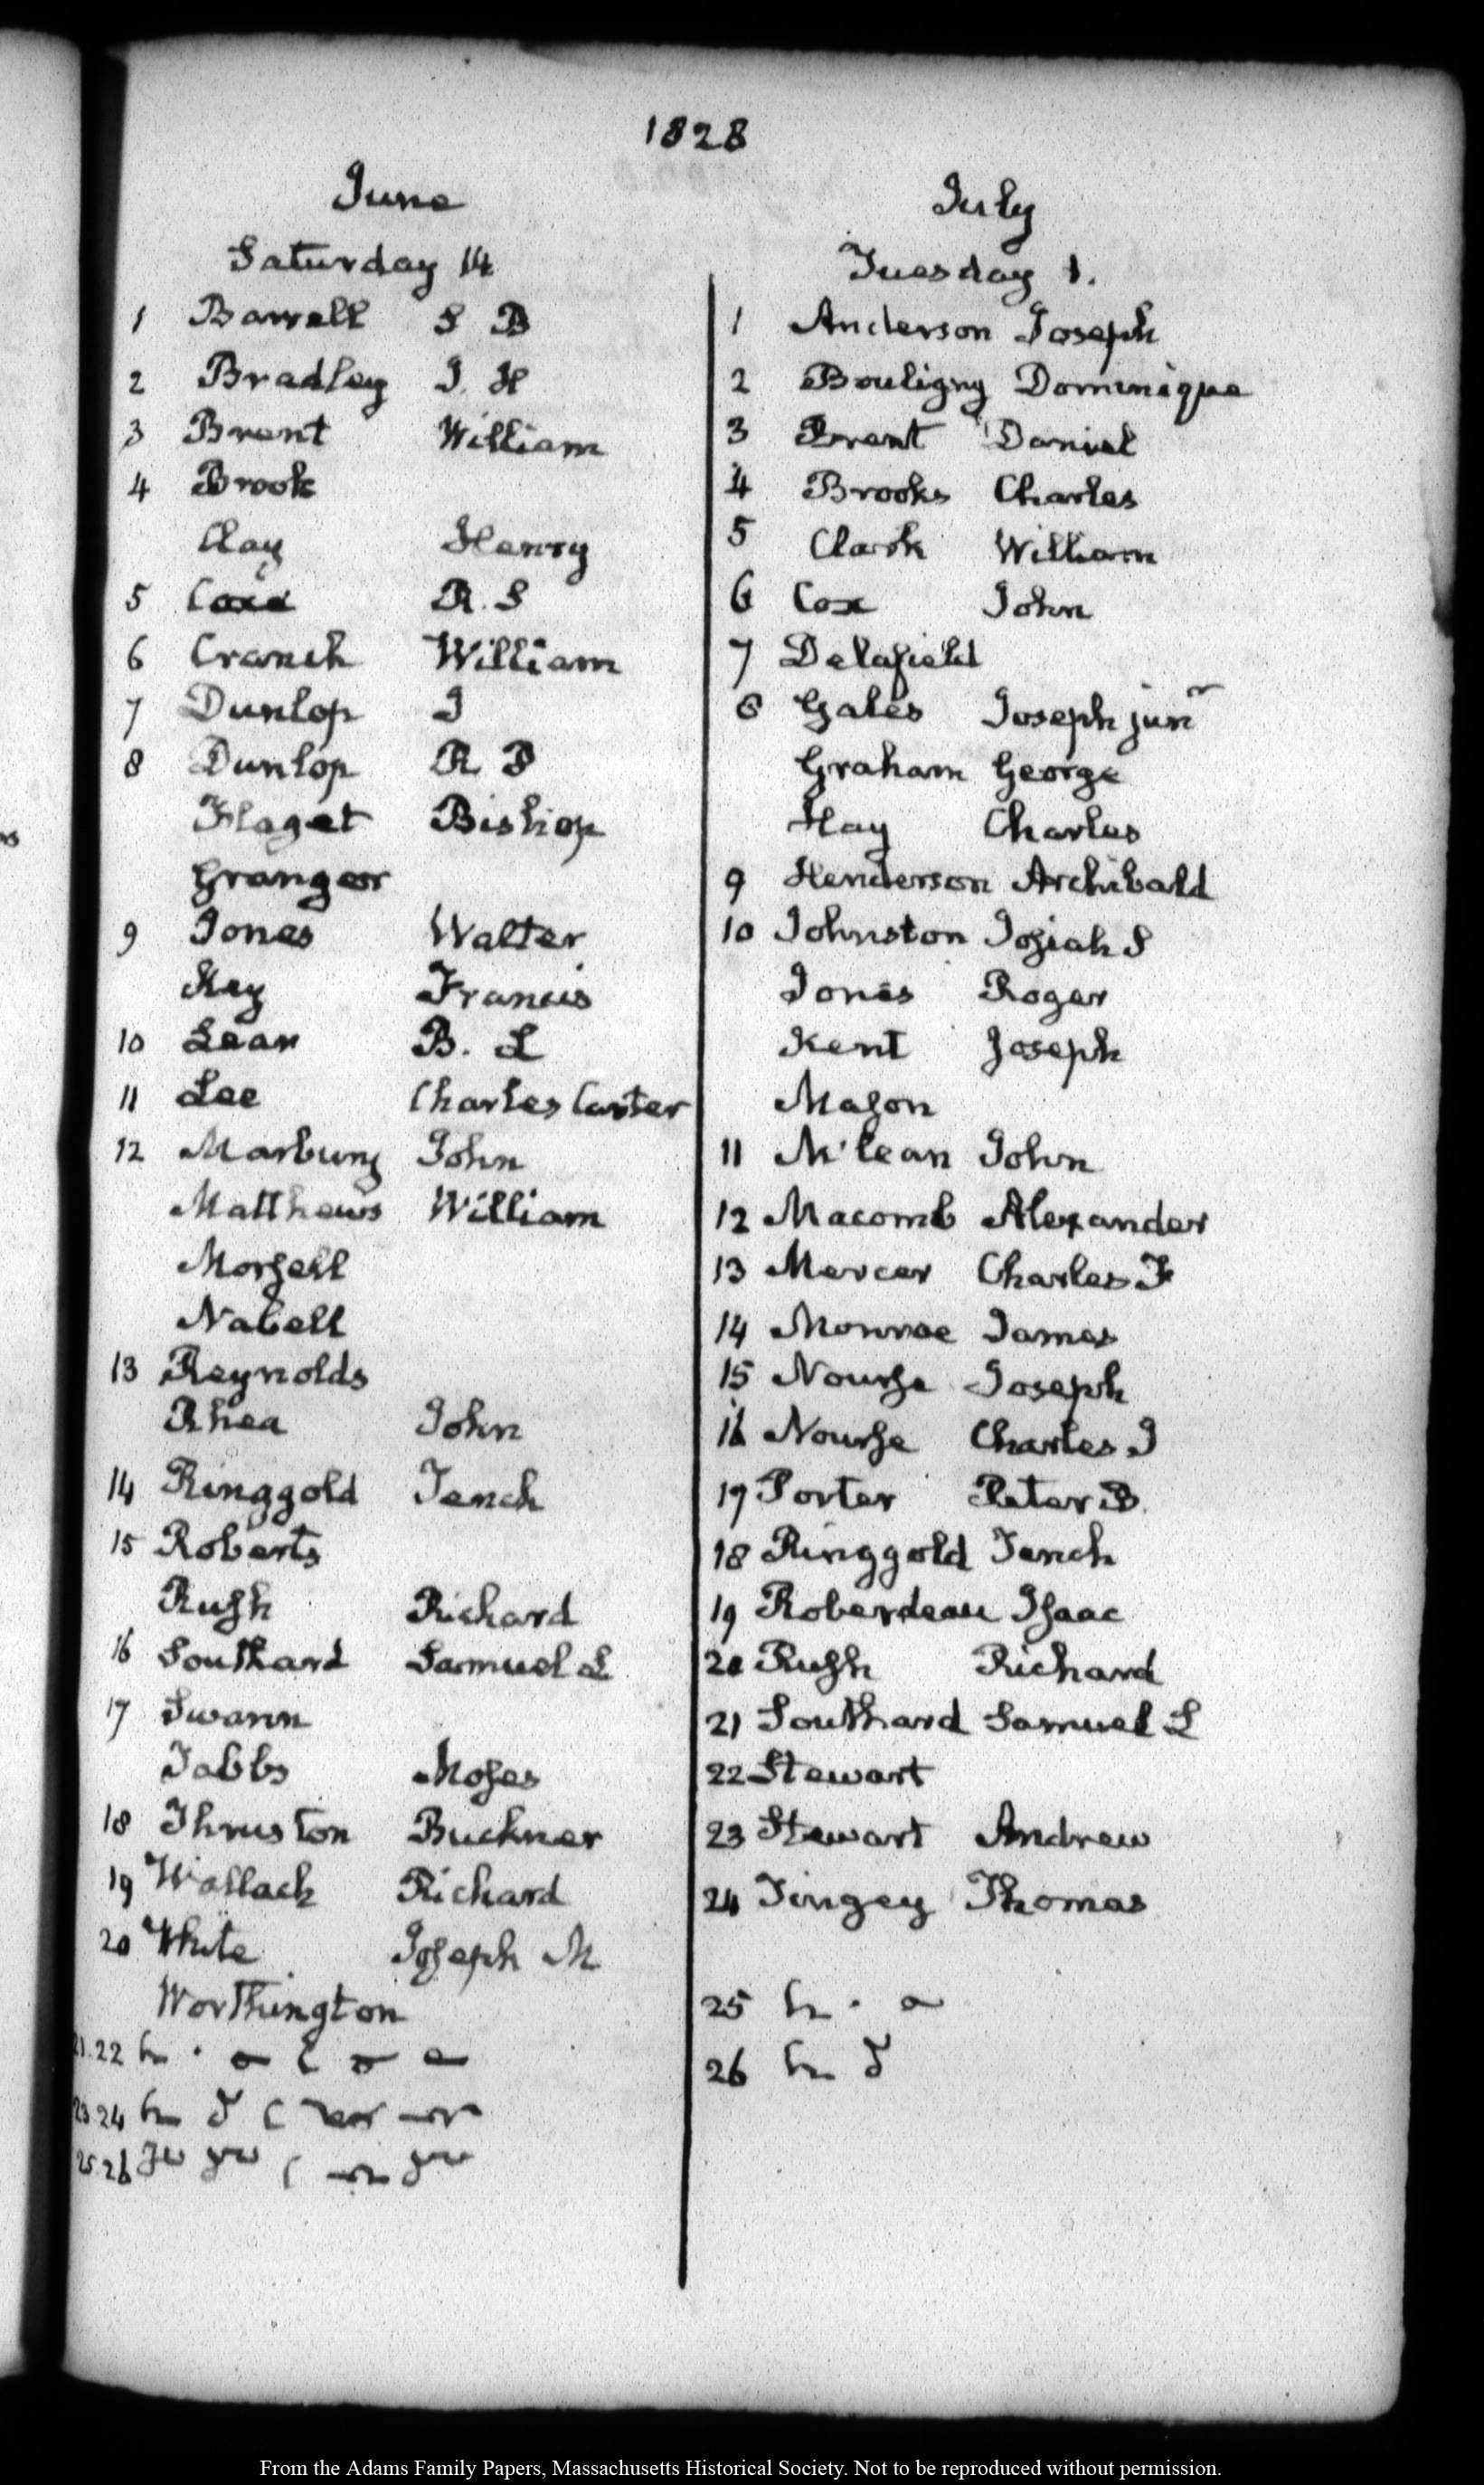 1828
June
Saturday 14
1 Barrell S B
2 Bradley J. H
3 Brent William
4 Brook
Clay Henry
5 Coxe R. S
6 Cranch William
7 Dunlop J
8 Dunlop R P
Flaget Bishop
Granger
9 Jones Walter
Key Francis
10 Lear B. L
11 Lee Charles Carter
12 Marbury John
Matthews William
Morsell
Nabell
13 Reynolds
Rhea John
14 Ringgold Tench
15 Roberts
Rush Richard
16 Southard Samuel L
17 Swann
Tabbs Moses
18 Thruston Buckner
19 Wallach Richard
20 White Joseph M
Worthington
21.22
23 24
25.26
July
Tuesday 1.
1 Anderson Joseph
2 Bouligny Dominique
3 Brent Daniel
4 Brooks Charles
5 Clark William
6 Cox John
7 Delafield
8 Gales Joseph junr
Graham George
Hay Charles
9 Henderson Archibald
10 Johnston Josiah S
Jones Roger
Kent Joseph
Mason
11 M'lean John
12 Macomb Alexander
13 Mercer Charles F
14 Monroe James
15 Nourse Joseph
16 Nourse Charles J
17 Porter Peter B.
18 Ringgold Tench
19 Roberdeau Isaac
20 Rush Richard
21 Southard Samuel L
22 Stewart
23 Stewart Andrew
24 Tingey Thomas
25
26
From the Adams Family Papers, Massachusetts Historical Society. Not to be reproduced without permission.